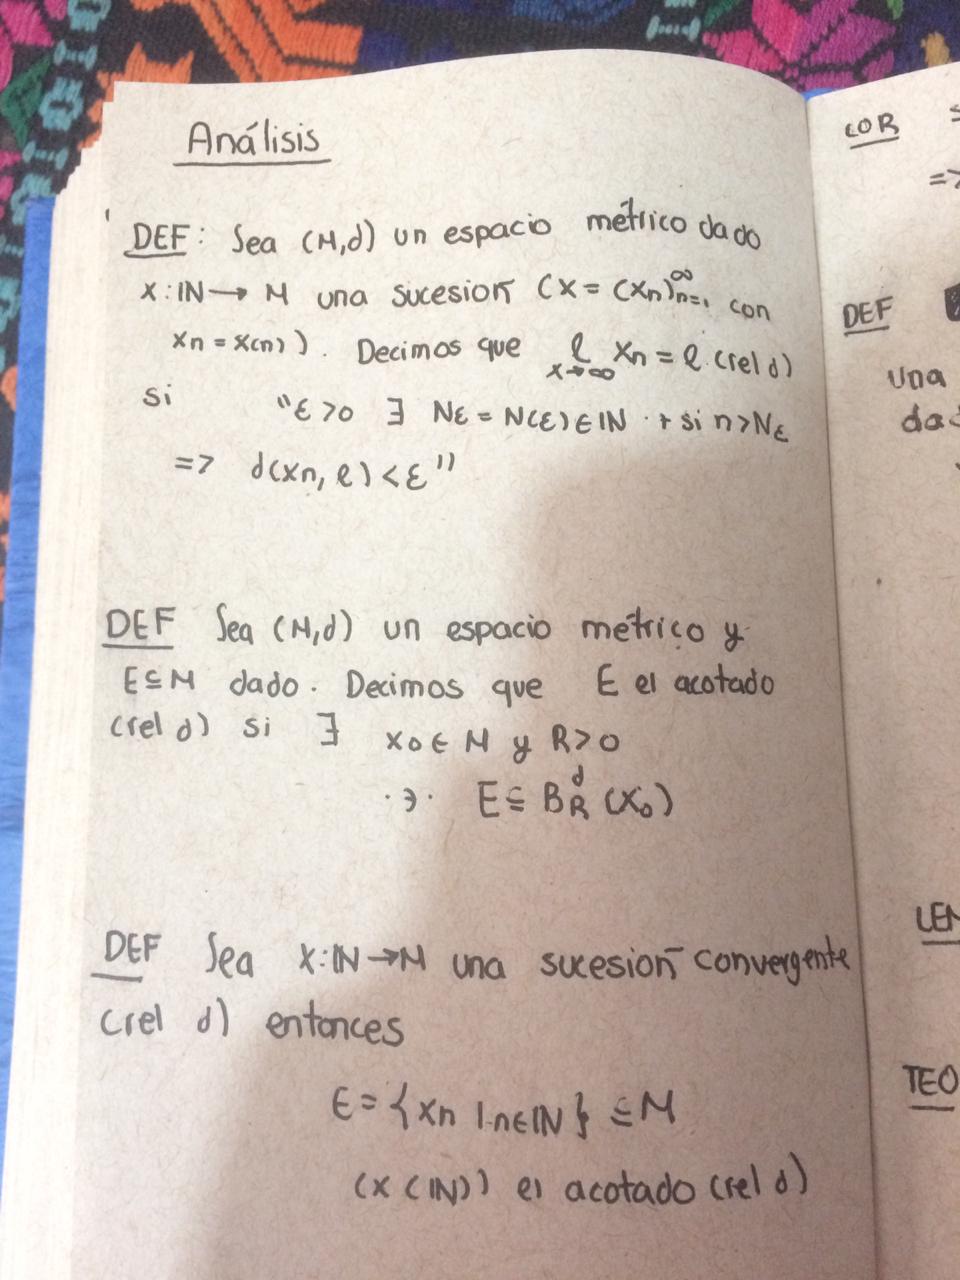 Análisis
DEF: Sea (M,d) un espacio métrico dado
x:ℕ→ M una sucesion (x = (xn)∞n=1 con
xn = x(n)). Decimos que ℓ x→∞ xn = ℓ (rel d)
si "ε>0 ∃ Nε = N(ε)∈ℕ ·+ si n>Nε
=> d(xn, ℓ) < ε"
DEF Sea (M,d) un espacio métrico y
E⊆M dado. Decimos que E es acotado
(rel d) si ∃ x0 ∈ M y R>0
·∋· E ⊆ B^d_R (x0)
DEF Sea x:ℕ→M una sucesión convergente
(rel d) entonces
E = {xn | n∈ℕ} ⊆ M
(x(ℕ)) es acotado (rel d)
COR
=>
DEF
una
LEM
TEO